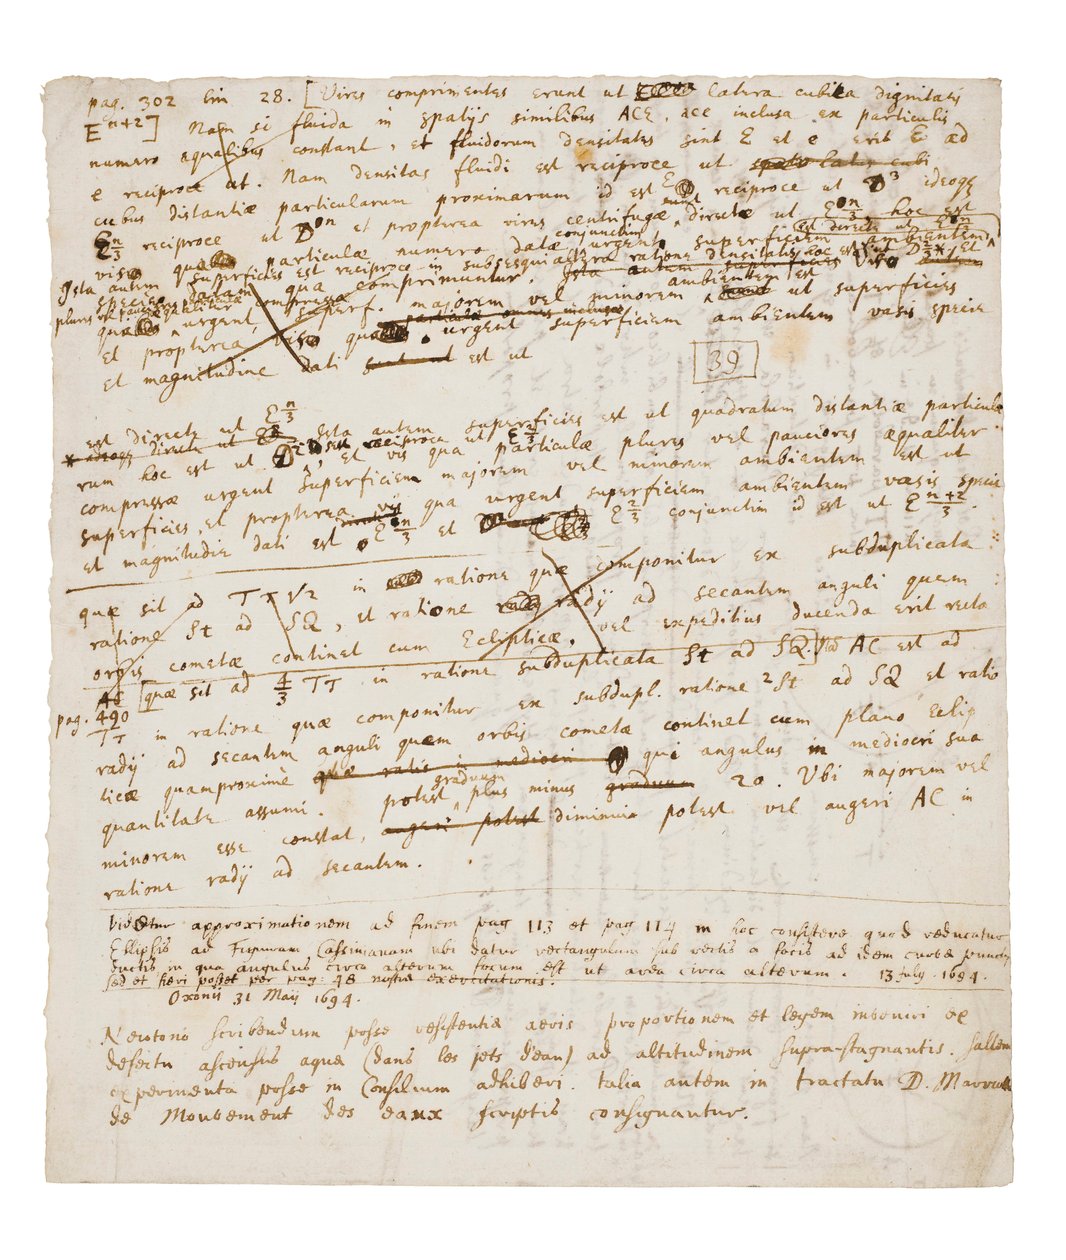 pag. 302 lin 28. [Vires comprimentes erunt ut latera cubica dignitatis
E^{n+2}] Nam si fluida in spatijs similibus ACE, ace inclusa ex particulis
numero aqualibus constant, et fluidorum densitates sint E et e erit E ad
e reciproce ut. Nam densitas fluidi est reciproce ut cubi
cubus distantiæ particularum proximarum id est E reciproce ut D^3 ideoqꝫ
E^{n/3} reciproce ut D^n et propterea vires centrifugæ sunt directe ut E^{n/3} hoc est
vis qua particulæ numero datæ urgent superficiem ambientem
Ista autem superficies est reciproce in subsesquialtera ratione densitatis hoc est ut
species qua comprimuntur. Ista autem
plures vel pauciores æqualiter compressa superf. majorem vel minorem ambientem est ut superficies
qua urgent
et propterea vis qua urgent superficiem ambientem vasis specie
et magnitudine dati est ut
39
est directe ut E^{n/3} Ista autem superficies est ut quadratum distantiæ particula
* ideoqꝫ directe ut reciproca ut E^{2/3}
rum hoc est ut D^2 et vis qua particulæ plures vel pauciores æqualiter
compressæ urgent superficiem majorem vel minorem ambientem est ut
superficies, et propterea vis qua urgent superficiem ambientem vasis specie
et magnitudine dati est E^{n/3} et E^{2/3} conjunctim id est ut E^{n+2/3}.
quæ sit ad T × √2 in ratione quæ componitur ex subduplicata
ratione St ad SQ, et ratione radij ad secantem anguli quem
orbis cometæ continet cum Eclipticæ. vel expeditius ducenda erit recta
AC [quæ sit ad 4/3 TT in ratione subduplicata St ad SQ.] AC est ad
pag. 490
TT in ratione quæ componitur ex subdupl. ratione 2St ad SQ et ratio
radij ad secantem anguli quem orbis cometæ continet cum plano Eclip
ticæ quamproximè quæ ratio in mediocri qui angulus in mediocri sua
quantitate assumi potest graduum plus minus graduum 20. Ubi majorem vel
minorem esse constat, augeri potest diminui potest vel augeri AC in
ratione radij ad secantem.
Videtur approximationem ad finem pag 113 et pag 114 in hoc consistere quod reducatur
Ellipsis ad Figuram Cassinianam ubi datur rectangulum sub rectis a focis ad idem curvæ punctum
ductis in qua angulus circa alterum focum est ut area circa alterum. 13 July. 1694.
sed et fieri posset per pag. 48 nostræ exercitationis.
Oxonij 31 Maij 1694.
Neutono scribendum posse resistentiæ aeris proportionem et legem inveniri ex
defectu ascensus aquæ (dans les jets d'eau) ad altitudinem supra-stagnantis. saltem
experimenta posse in Consilium adhiberi. talia autem in tractatu D. Marriotti
de Mouvement des eaux scriptis consignantur.